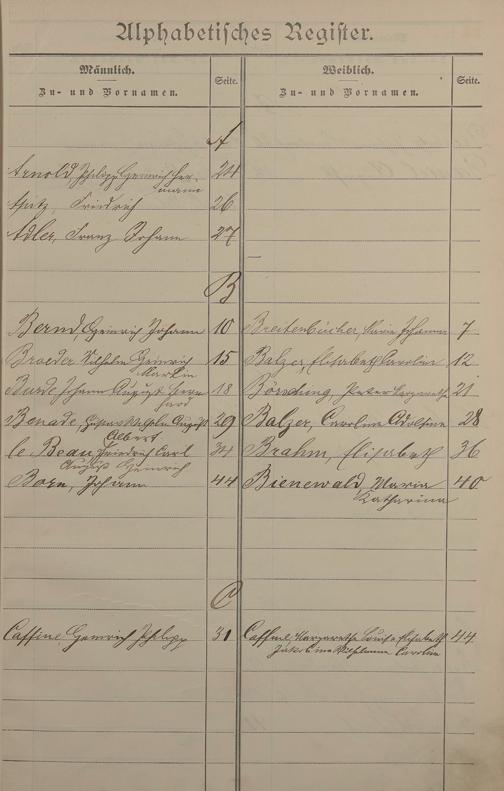 Alphabetisches Register.
Männlich. Seite. Weiblich. Seite.
Zu- und Vornamen. Zu- und Vornamen.
A
Arnold, Philipp Heinrich Her- 24
mann
Friedrich 26
Adler, Franz Johann 27
B
Bernd, Heinrich Johann 10 Breitenbücher, Marie Johanna 7
Broeder Wilhelm Heinrich 15 Balzer, Elisabeth Carolin 12
Martin
Burde Johann August Bern 18 21
hard
Benade, Gustav Wilhelm August 29 Balzer, Carolina Adolfine 28
Albert
le Beau, Friedrich Carl 34 Brahm, Elisabeth 36
August Heinrich
Born, Johann 44 Bienewald, Maria 40
Katharina
C
Caffine Heinrich Philipp 31 Caffine Margaretha Louise Elisabeth 44
Jakobine Wilhelmine Caroline